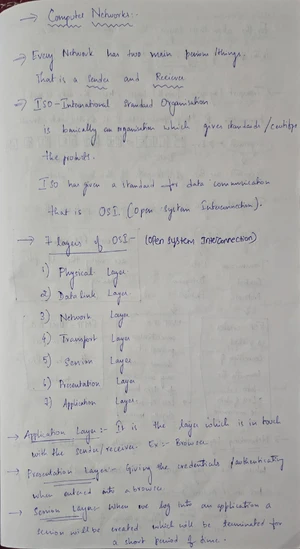 → Computer Networks:-
→ Every Network has two main persons/things.
That is a Sender and Reciever
→ ISO - International Standard Organisation
is basically an organisation which gives standards/
the products.
ISO has given a standard for data communication
that is OSI. (Open System Interconnection).
→ 7 layers of OSI:- (Open System Interconnection)
1) Physical Layer
2) Data link Layer
3) Network Layer
4) Transport Layer
5) Session Layer
6) Presentation Layer
7) Application Layer.
→ Application Layer:- It is the layer which is in touch
with the sender/receiver. Ex:- Browser.
→ Presentation Layer:- Giving the credentials
when entered into a browser.
→ Session Layer:- When we log into an application a
session will be created which will be terminated for
a short period of time.